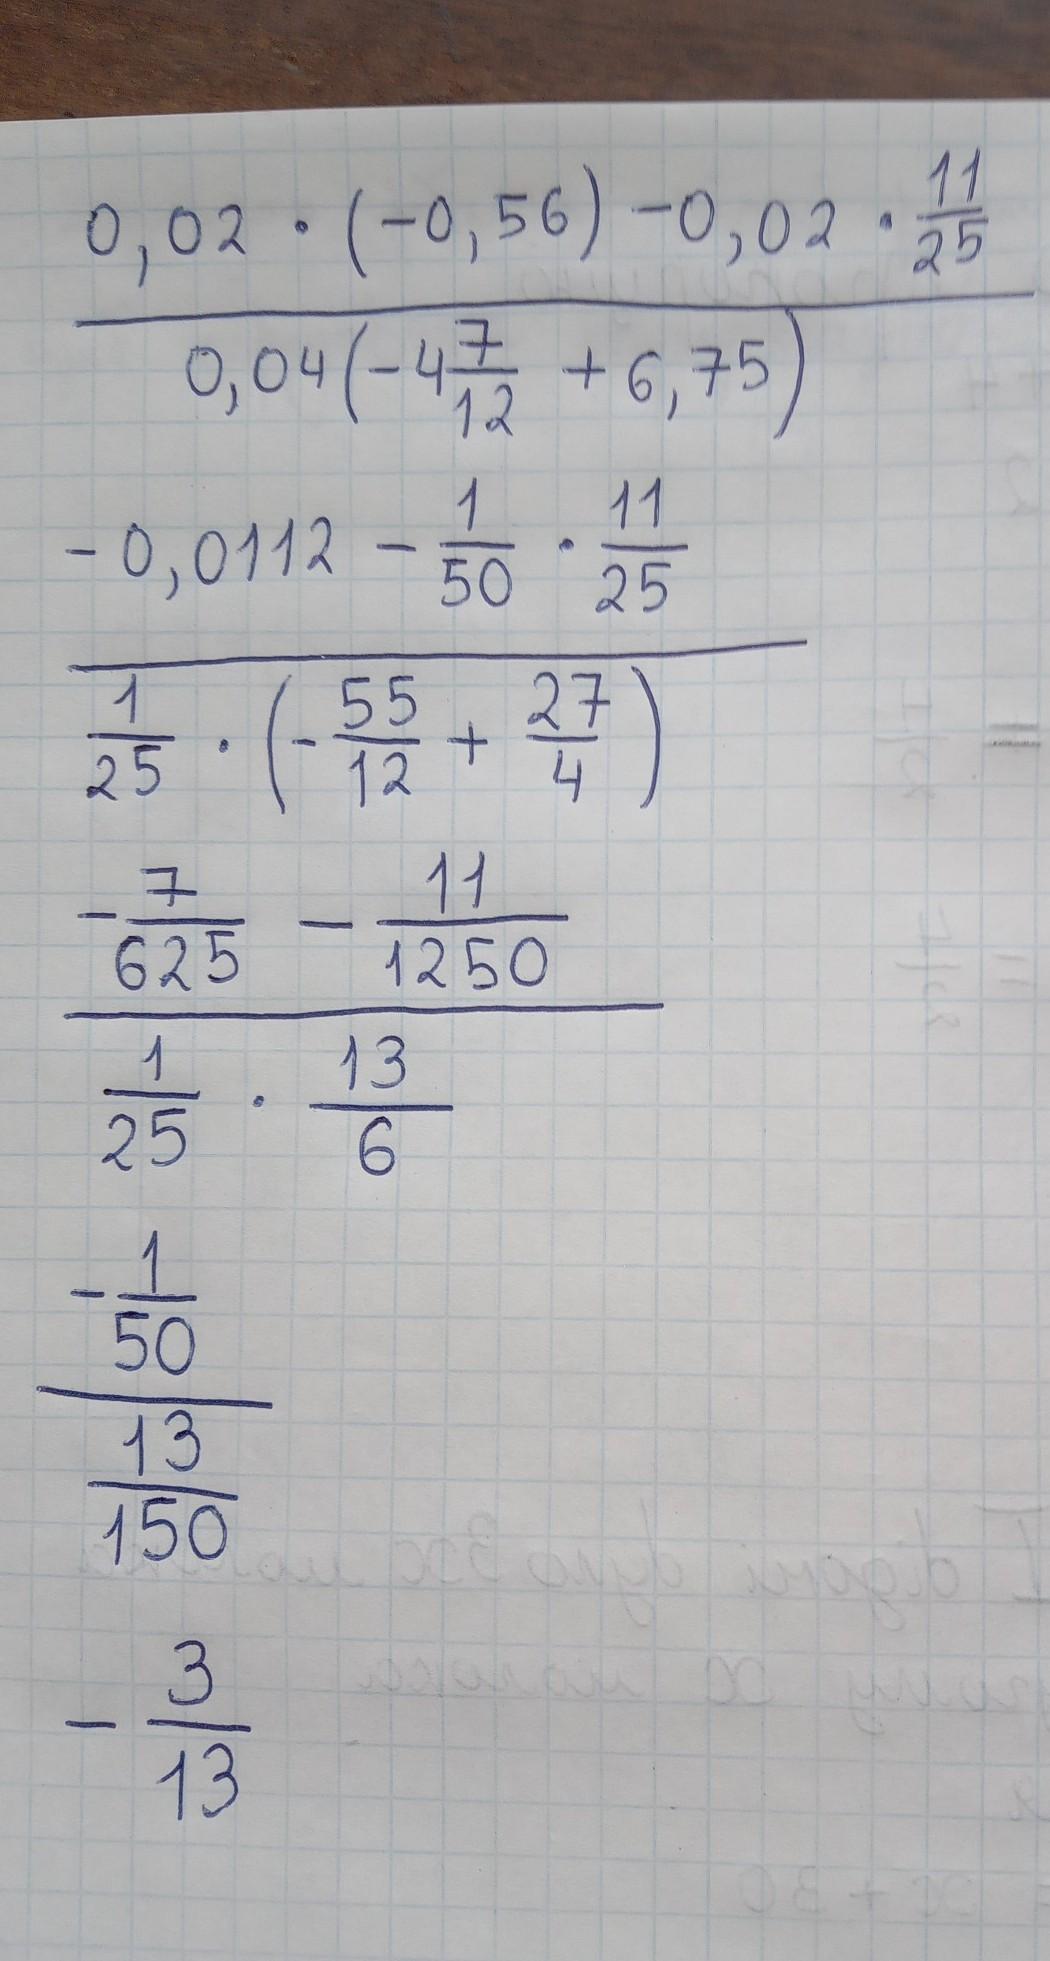 0,02 · (-0,56) - 0,02 · 11/25
0,04(-4 7/12 + 6,75)
-0,0112 - 1/50 · 11/25
1/25 · (-55/12 + 27/4)
-7/625 - 11/1250
1/25 · 13/6
-1/50
13/150
- 3/13